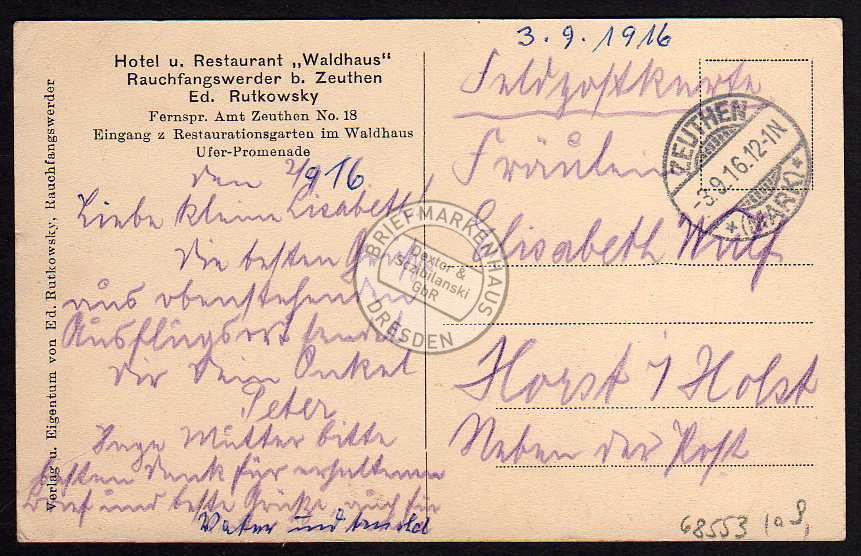 3.9.1916
Hotel u. Restaurant „Waldhaus“
Rauchfangswerder b. Zeuthen
Ed. Rutkowsky
Fernspr. Amt Zeuthen No. 18
Eingang z Restaurationsgarten im Waldhaus
Ufer-Promenade
Verlag u. Eigentum von Ed. Rutkowsky, Rauchfangswerder
den 2/9 16
Liebe kleine Lisabeth!
Die besten Grüße
aus obenstehenden
Ausflugsort sendet
Dir Dein Onkel
Peter
Sage Mutter bitte
besten Dank für erhaltenen
Brief und beste Grüße, auch für
Vater und
Feldpostkarte
Fräulein
Elisabeth Wulf
Horst i/Holst
Neben der Post
ZEUTHEN
-3.9.16.12-1N
*(MARK)*
BRIEFMARKENHAUS
Dextor &
Strzibilanski
GbR
DRESDEN
68553